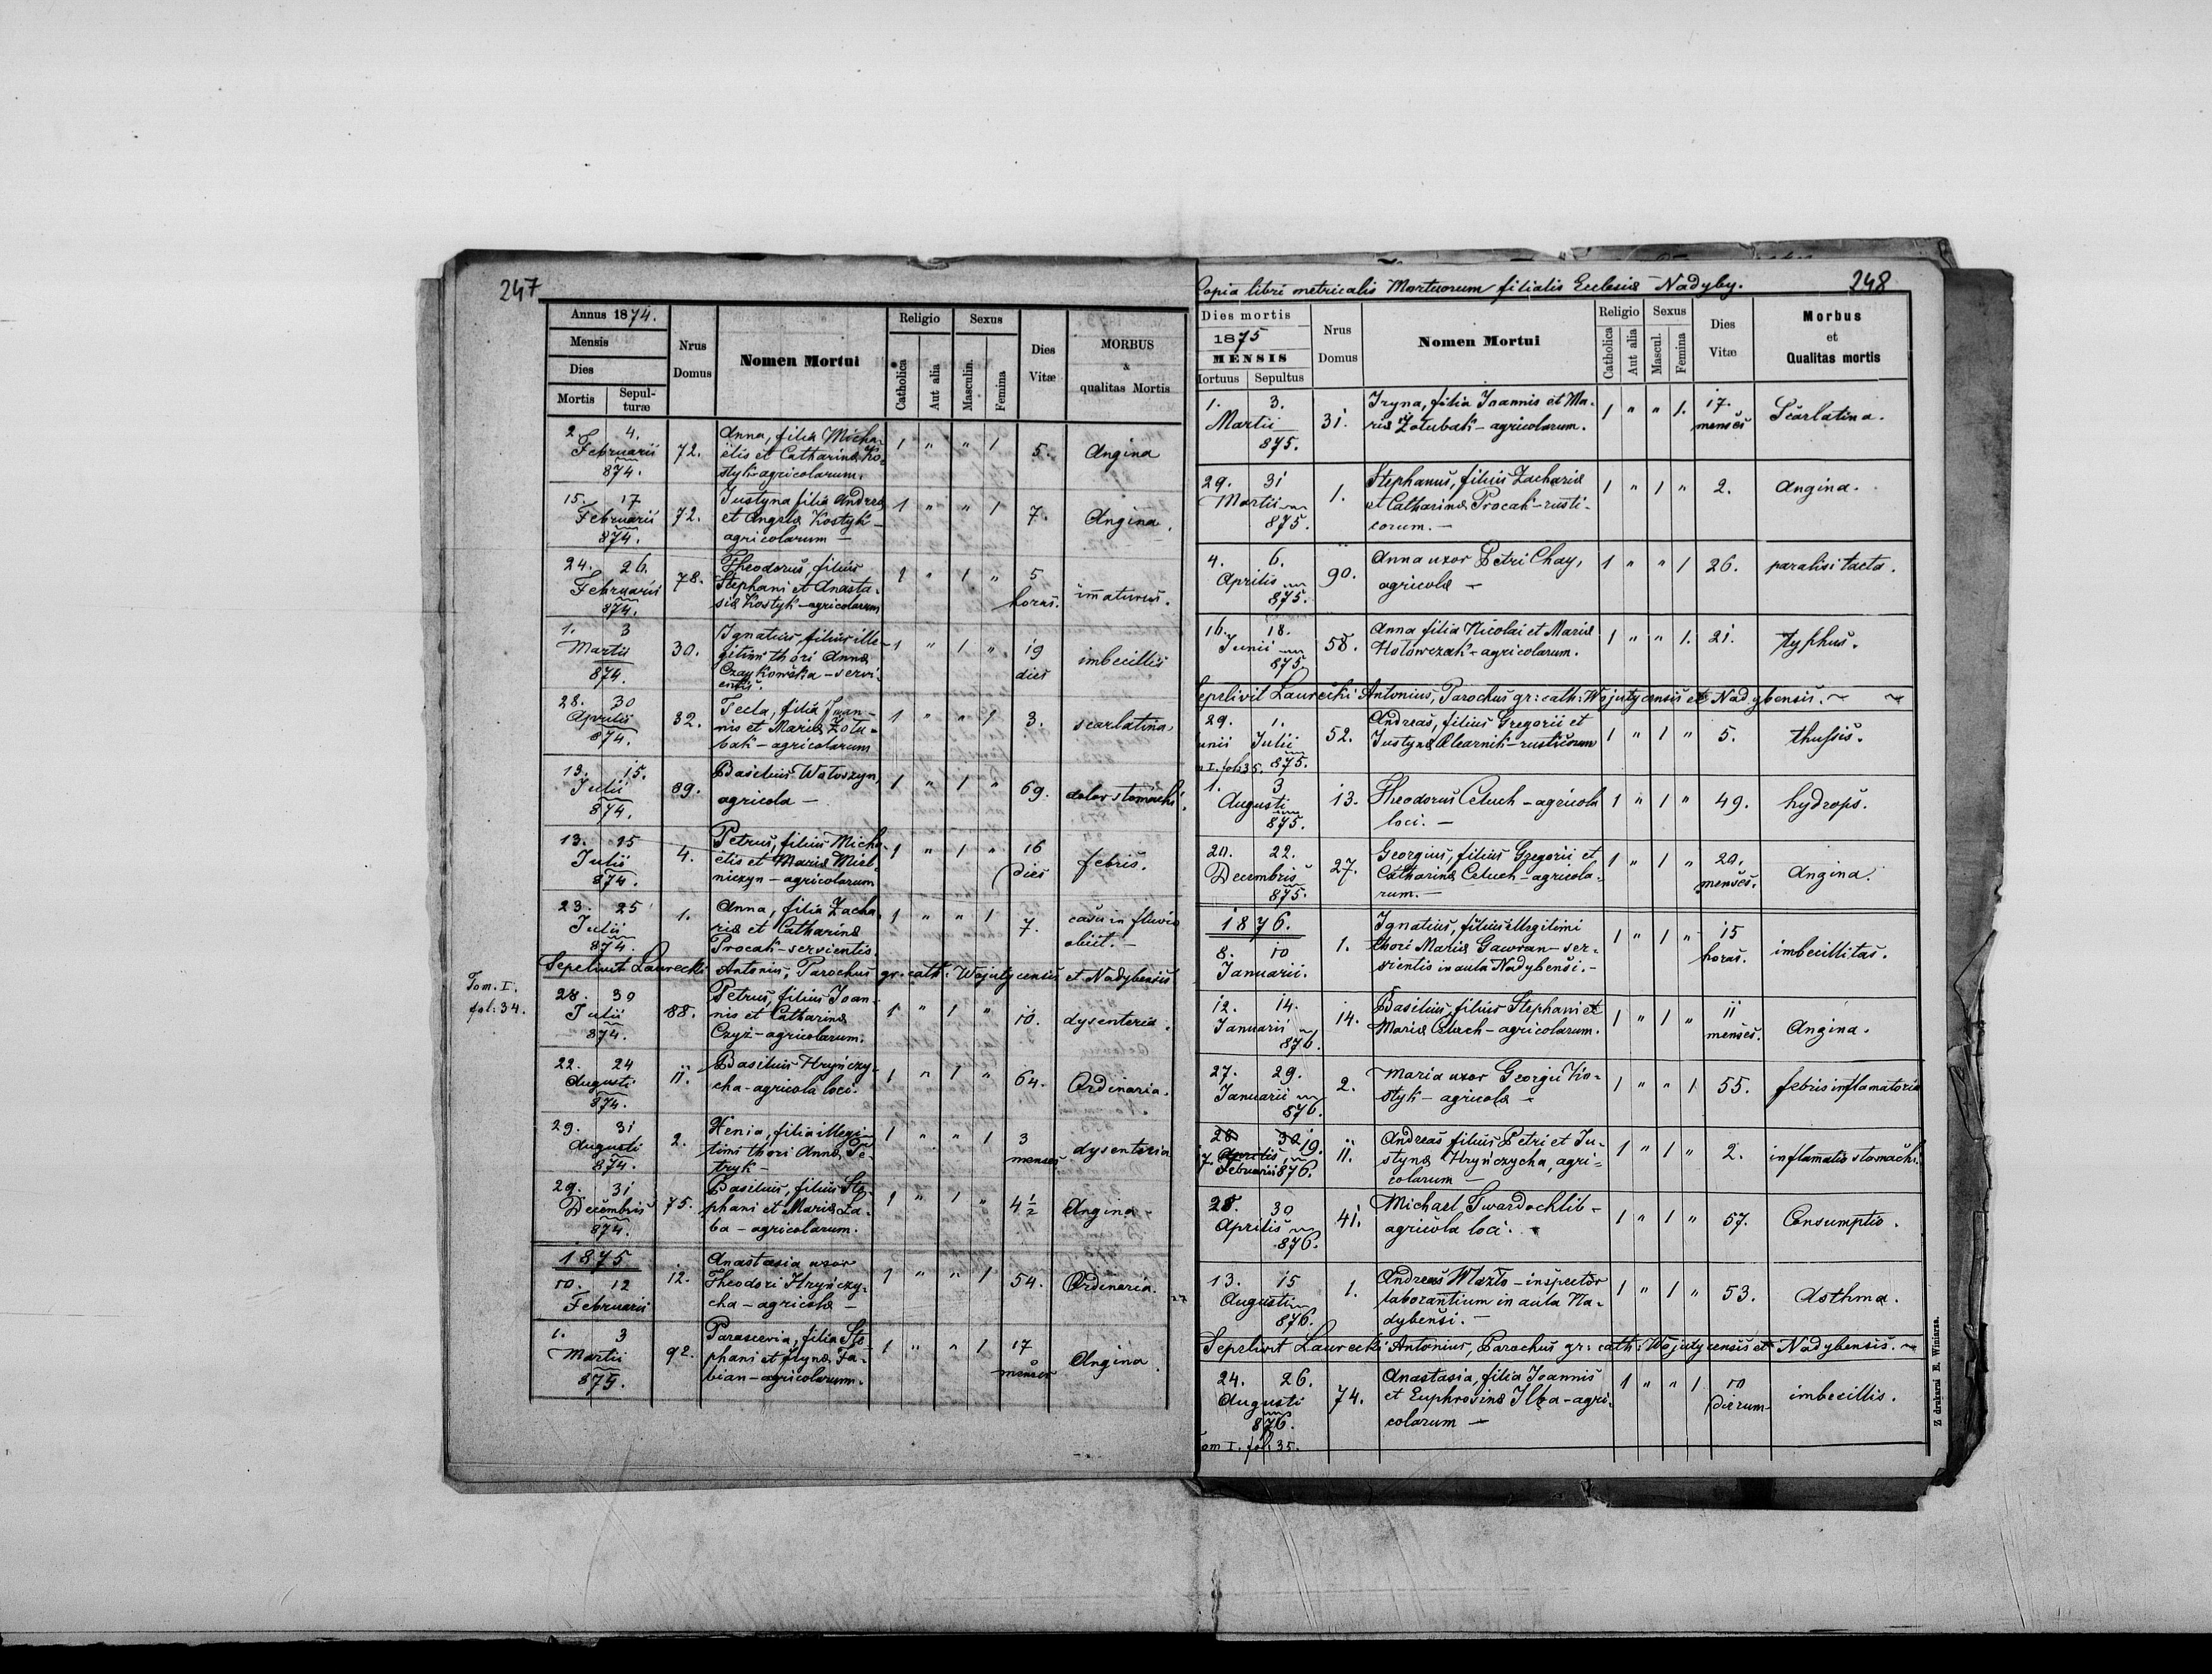 247
Annus 1874.
Mensis
Dies
Mortis
Sepul-
turæ
Nrus
Domus
Nomen Mortui
Religio
Catholica
Aut alia
Sexus
Masculin.
Femina
Dies
Vitæ
MORBUS
&
qualitas Mortis
2. 4.
Februarii
874.
72.
Anna, filia Micha-
elis et Catharinæ Ko-
styk agricolarum.
1 " " 1
5.
Angina
15. 17
Februarii
874.
72.
Justyna filia Andreæ
et Angelæ Kostyk -
agricolarum -
1 " " 1
7.
Angina.
24. 26.
Februarii
874.
78.
Theodorus, filius
Stephani et Anasta-
siæ Kostyk - agricolarum
1 " 1 "
5
horas.
imaturus.
1. 3
Martii
874.
30.
Ignatius, filius ille-
gitimi thori Annæ
Czajkowska - servi-
entis.
1 " 1 "
19
dies
imbecillis
28. 30
Aprilis
874.
32.
Tecla, filia Joan-
nis et Mariæ Zołu-
bak - agricolarum
1 " " 1
3.
scarlatina
13. 15.
Julii
874.
89.
Basilius Wołoszyn,
agricola -
1 " 1 "
69.
dolor stomachi.
13. 15
Julii
874.
4.
Petrus, filius Micha-
elis et Mariæ Miel-
niczyn - agricolarum
1 " 1 "
16
dies
febris.
23. 25
Julii
874.
1.
Anna, filia Zacha-
riæ et Catharinæ
Procak - servientis
1 " " 1
7.
casu in fluvio
obiit. -
Sepelivit Laurecki Antonius, Parochus gr: cath: Wojutycensis et Nadybensis
Tom. I.
fol: 34.
28. 30
Julii
874.
88.
Petrus, filius Joan-
nis et Catharinæ
Czyż - agricolarum.
1 " 1 "
10.
dysenteria.
22. 24
Augusti
874.
11.
Basilius Hryńczy-
cha - agricola loci.
1 " 1 "
64.
Ordinaria.
29. 31
Augusti
874.
2.
Xenia, filia illegi-
timi thori Annæ Pe-
tryk -
1 " " 1
3
menses
dysenteria
29. 31
Decembris
874.
75.
Basilius, filius Ste-
phani et Mariæ Za-
ba - agricolarum.
1 " 1 "
4 1/2
Angina -
1875
10. 12
Februarii
12.
Anastasia uxor
Theodori Hryńczy-
cha - agricolæ -
1 " " 1
54.
Ordinaria.
1. 3
Martii
875.
92.
Parascevia, filia Ste-
phani et Irynæ Fa-
bian - agricolarum.
1 " " 1
17
menses
Angina.
Copia libri metricalis Mortuorum filialis Eclesiæ Nadyby.
248
Dies mortis
1875
MENSIS
Mortuus
Sepultus
Nrus
Domus
Nomen Mortui
Religio
Catholica
Aut alia
Sexus
Mascul.
Femina
Dies
Vitæ
Morbus
et
Qualitas mortis
1. 3.
Martii
875.
31.
Iryna, filia Joannis et Ma-
riæ Zołubak - agricolarum.
1 " " 1.
17.
menses
Scarlatina.
29. 31
Martii
875.
1.
Stephanus, filius Zachariæ
et Catharinæ Procak - rusti-
corum. -
1 " 1 "
2.
Angina.
4. 6.
Aprilis
875.
90.
Anna uxor Petri Chay,
agricolæ -
1 " " 1
26.
paralisi tacta.
16. 18.
Junii
875.
58.
Anna filia Nicolai et Mariæ
Hołowczak - agricolarum.
1 " " 1.
21.
typhus.
Sepelivit Laurecki Antonius, Parochus gr: cath: Wojutycensis et Nadybensis.
29. 1.
Junii Julii
875.
Tom I. fol: 35.
52.
Andreas, filius Gregorii et
Justynæ Olearnik - rusticorum
1 " 1 "
5.
thussis.
1. 3
Augusti
875.
13.
Theodorus Celuch - agricola
loci. -
1 " 1 "
49.
hydrops.
20. 22.
Decembris
875.
27.
Georgius, filius Gregorii et
Catharinæ Celuch - agricola-
rum. -
1 " 1 "
20.
menses.
Angina.
1876.
8. 10
Januarii.
1.
Ignatius, filius illegitimi
thori Mariæ Gawran - ser-
vientis in aula Nadybensi. -
1 " 1 "
15
horas.
imbecillitas.
12. 14.
Januarii
876.
14.
Basilius, filius Stephani et
Mariæ Celuch - agricolarum.
1 " 1 "
11
menses.
Angina.
27. 29.
Januarii
876.
2.
Maria uxor Georgii Ko-
styk - agricolæ -
1 " " 1
55.
febris inflamatoria
28 30 19.
17. Aprilis
Februarii 876.
11.
Andreas filius Petri et Ju-
stynæ Hryńczycha, agri-
colarum -
1 " 1 "
2.
inflamatio stomachi.
28. 30
Aprilis
876.
41.
Michael Twardochlib -
agricola loci.
1 " 1 "
57.
Consumptio.
13. 15
Augusti
876.
1.
Andreas - inspector
laborantium in aula Na-
dybensi. -
1 " 1 "
53.
Asthma.
Sepelivit Laurecki Antonius, Parochus gr: cath: Wojutycensis et Nadybensis.
24. 26.
Augusti
876.
Tom I. fol: 35.
74.
Anastasia, filia Joannis
et Euphrosinæ - agri-
colarum -
1 " " 1
10
dierum
imbecillis.
Z drukarni E. Winiarza.